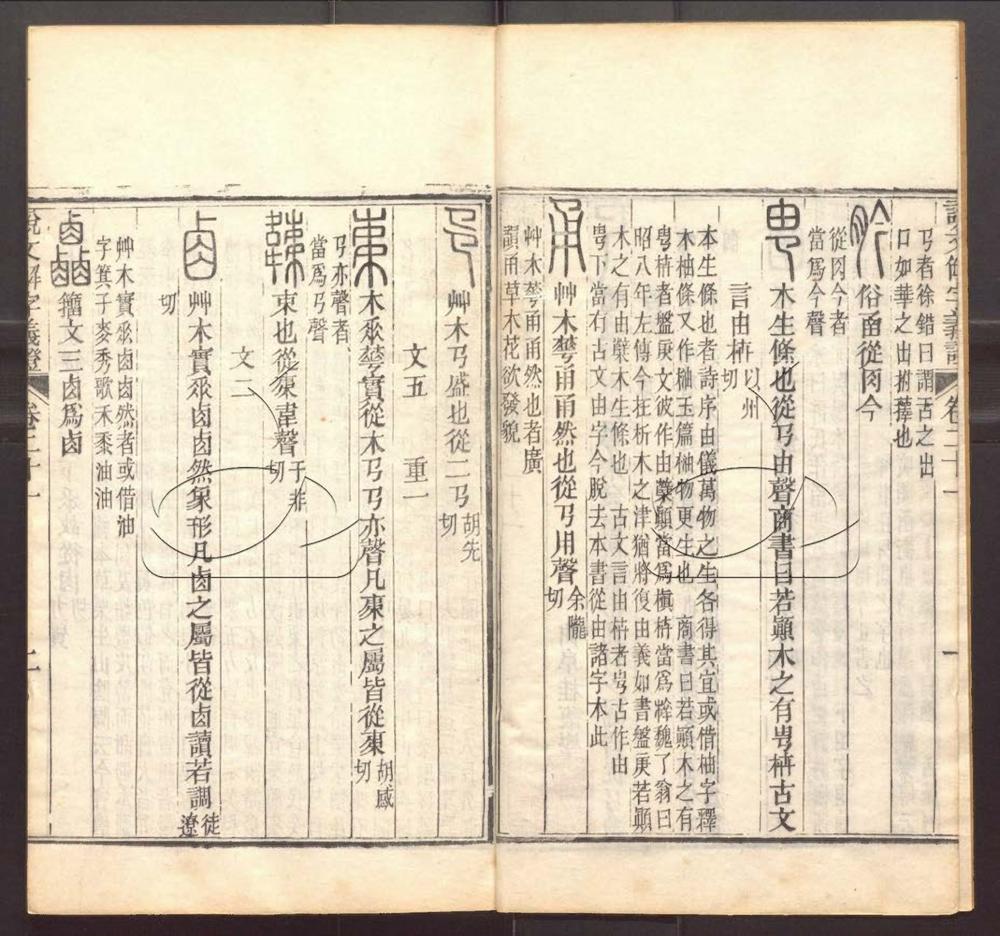 說文解字義證 卷二十一 一
𢎘者徐鍇曰謂舌之出
口如華之出拊蕚也
肣 俗圅從肉今
從肉今者
當爲今聲
㽕 木生條也從𢎘由聲商書曰若顚木之有㽕枿古文
言由枿以州切
本生條也者詩序由儀萬物之生各得其宜或借柚字釋
木柚條又作櫾玉篇櫾物更生也 商書曰若顚木之有
㽕枿者盤庚文彼作由蘖顚當爲槇枿當爲㭓魏了翁曰
昭八年左傳今在析木之津猶將復由義如書盤庚若顚
木之有由櫱木生條也 古文言由枿者㽕古作由
㽕下當有古文由字今脫去本書從由諸字本此
甬 艸木華甬甬然也從𢎘用聲余隴切
艸木華甬甬然也者廣
韻甬草木花欲發貌
艸木𢎘盛也從二𢎘胡先切
文五 重一
𣐺 木𠂹華實從木𢎘𢎘亦聲凡𣐺之屬皆從𣐺胡感切
𢎘亦聲者
當爲𢎘聲
束也從𣐺韋聲于非切
文二
𠧪 艸木實𠂹𠧪𠧪然象形凡𠧪之屬皆從𠧪讀若調徒遼
切
艸木實𠂹𠧪𠧪然者或借油
字箕子麥秀歌禾黍油油
籒文三𠧪爲𠧪
說文解字義證 卷二十一 二